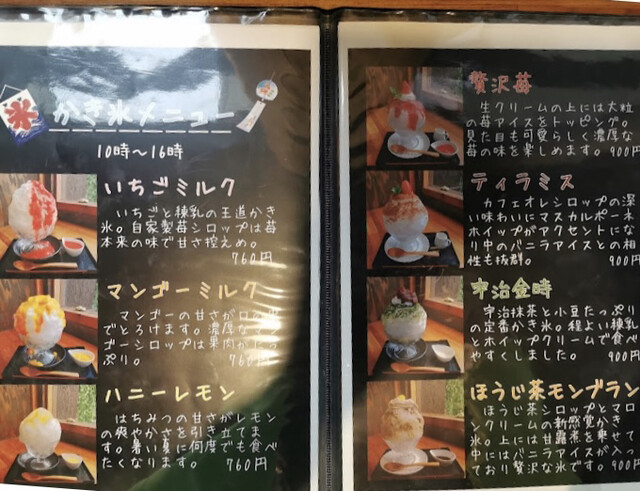 氷
かき氷メニュー
10時～16時
いちごミルク
いちごと練乳の王道かき
氷。自家製苺シロップは苺
本来の味で甘さ控えめ。
760円
マンゴーミルク
マンゴーの甘さが口の
でとろけます。濃厚なマン
ゴーシロップは果肉がたっ
ぷり。 760円
ハニーレモン
はちみつの甘さがレモン
の爽やかさを引き立てま
す。暑い夏に何度でも食べ
たくなります。 760円
贅沢苺
生クリームの上には大粒
の苺アイスをトッピング。
見た目も可愛らしく濃厚な
苺の味を楽しめます。 900円
ティラミス
カフェオレシロップの深
い味わいにマスカルポーネ
ホイップがアクセントにな
り中のバニラアイスとの相
性も抜群。 900円
宇治金時
宇治抹茶と小豆たっぷり
の定番かき氷。程よい練乳
とホイップクリームで食べ
やすくしました。 900円
ほうじ茶モンブラン
ほうじ茶シロップとマロ
ンクリームの新感覚かき
氷。上には甘露煮を乗せて
中にはバニラアイスが入っ
ており贅沢な氷です。 900円